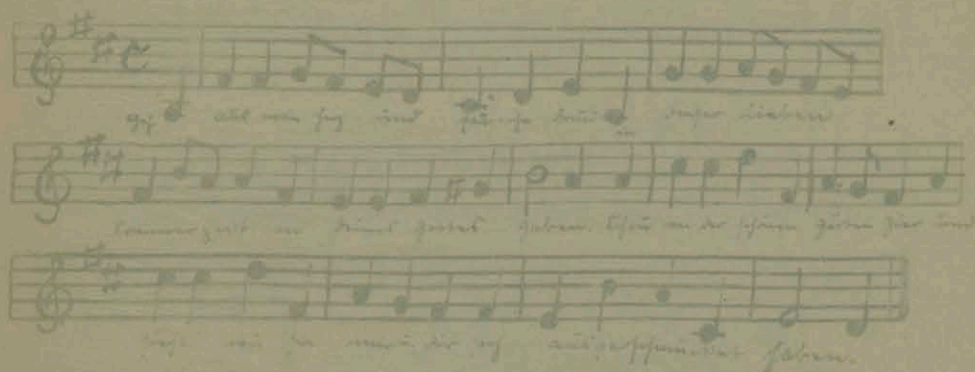 Geh aus mein Herz und suche Freud in dieser lieben
Sommerzeit an deines Gottes Gaben. Schau an der schönen Gärten Zier und
siehe wie sie mir und dir sich ausgeschmücket haben.